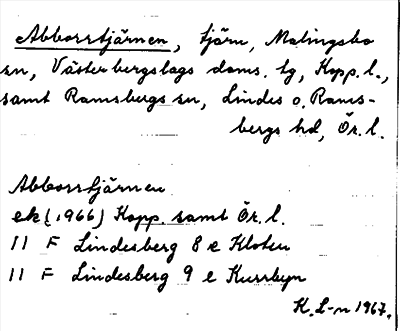 Abborrtjärnen, tjärn, Malingsbo
sn, Västerbergslags doms. tg, Kopp. l.,
samt Ramsbergs sn, Lindes o. Rams-
bergs hd, Ör. l.
Abborrtjärnen
ek (1966) Kopp. samt Ör. l.
11 F Lindesberg 8 e Kloten
11 F Lindesberg 9 e Kursbyn
K. L-n 1967.